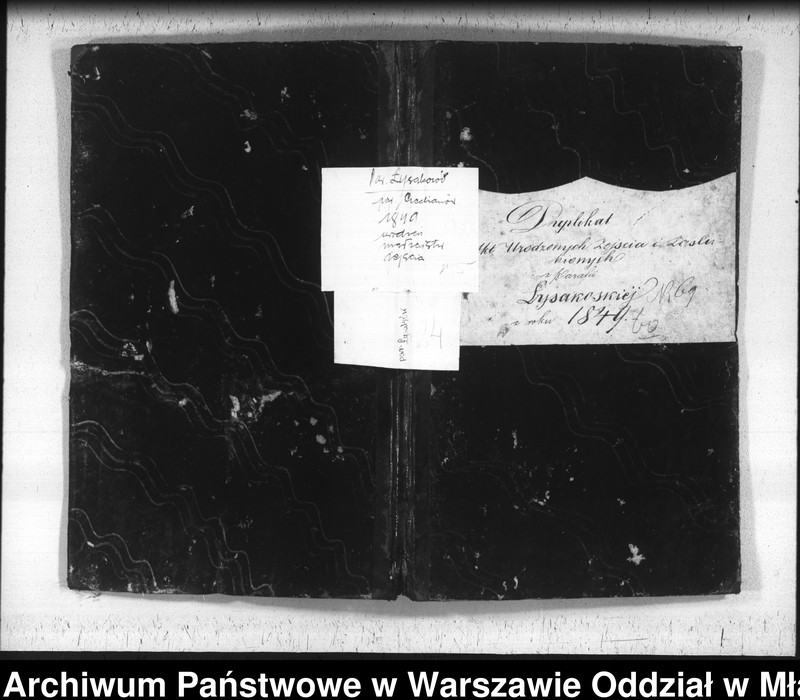 Par. Łysakowo
par. Ciechanów
1849
urodzeń
małżeństw
zejścia
par. Łysakowo
24
Duplikat
Akt Urodzonych Zejścia i Zaślu
bionych
z Parafii
Łysakoskiéj N. 69
z roku 1849.
Archiwum Państwowe w Warszawie Oddział w Mł